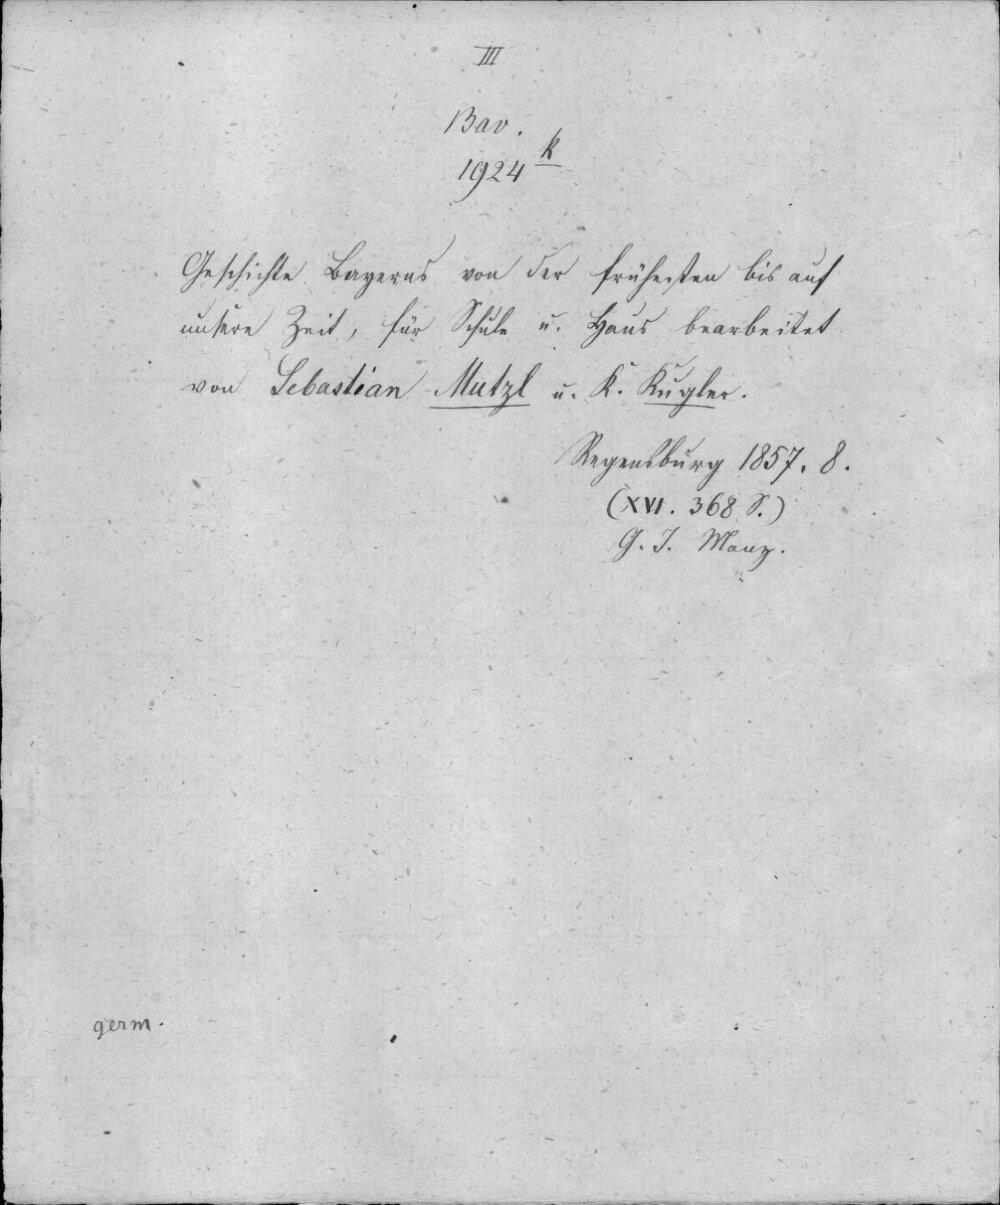 III
Bav.
1924 k
Geschichte Bayerns von der frühesten bis auf
unsere Zeit, für Schule u. Haus bearbeitet
von Sebastian Mutzl u. K. Kugler.
Regensburg 1857. 8.
(XVI. 368 S.)
G. J. Manz.
germ.